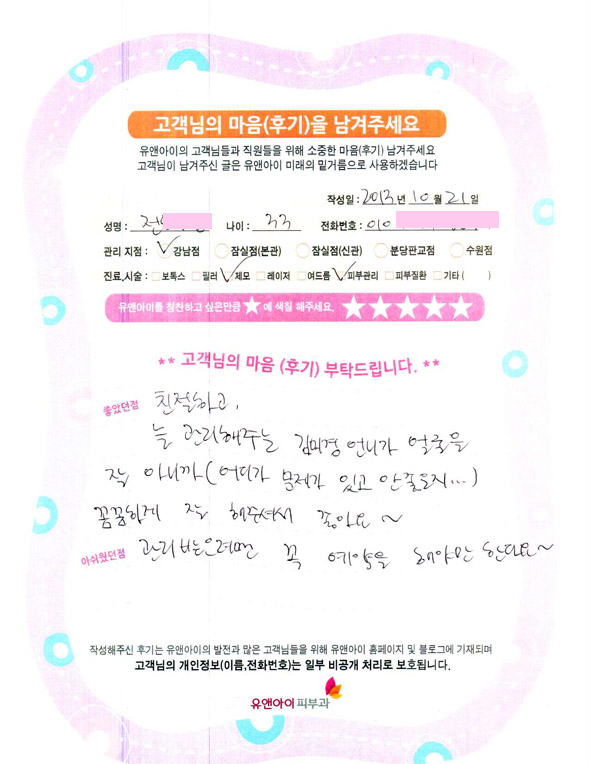 고객님의 마음(후기)을 남겨주세요
유앤아이의 고객님들과 직원들을 위해 소중한 마음(후기) 남겨주세요
고객님이 남겨주신 글은 유앤아이 미래의 밑거름으로 사용하겠습니다
작성일 : 2013 년 10 월 21 일
성명 : 전 나이 : 33 전화번호 : 010
관리 지점 : 강남점 잠실점(본관) 잠실점(신관) 분당판교점 수원점
진료,시술 : 보톡스 필러 제모 레이저 여드름 피부관리 피부질환 기타 ( )
유앤아이를 칭찬하고 싶은만큼 ★ 에 색칠 해주세요. ★★★★★
** 고객님의 마음 (후기) 부탁드립니다. **
좋았던점 친절하고,
늘 관리해주는 김미경 언니가 얼굴을
잘 아니까 (어디가 문제가 있고 안좋은지...)
꼼꼼하게 잘 해주셔서 좋아요 ~
아쉬웠던점 관리받으려면 꼭 예약을 해야만 한다요~
작성해주신 후기는 유앤아이의 발전과 많은 고객님들을 위해 유앤아이 홈페이지 및 블로그에 기재되며
고객님의 개인정보(이름,전화번호)는 일부 비공개 처리로 보호됩니다.
유앤아이 피부과